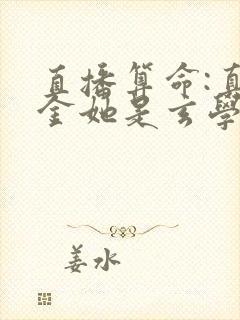 直播算命:真
金她是玄學
姜水